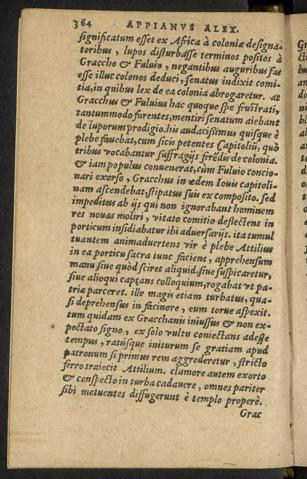 364 APPIANVS ALEX.
significatum esset ex Africa à coloniæ designa-
toribus, lupos disturbasse terminos positos à
Graccho & Fuluio, negantibus auguribus fas
esse illuc colonos deduci, senatus indixit comi-
tia, in quibus lex de ea colonia abrogaretur. at
Gracchus & Fuluius hac quoque spe frustrati,
tantummodo furentes, mentiri senatum aiebant
de luporum prodigio. his audacissimus quisque è
plebe fauebat, cum sicis petentes Capitoliũ, quò
tribus vocabantur suffragijs ferẽdis de colonia.
& iam populus conuenerat, cùm Fuluio concio-
nari exorso, Gracchus in ædem Iouis capitoli-
nam ascendebat, stipatus suis ex composito. sed
impeditus ab ijs qui non ignorabant hominem
res nouas moliri, vitato comitio deflectens in
porticum insidiabatur ibi aduersarijs. ita tumul
tuantem animaduertens vir è plebe Attilius
in ea porticu sacra tunc faciens, apprehensum
manu siue quòd sciret aliquid, siue suspicaretur,
siue alioqui captans colloquium, rogabat vt pa-
triæ parceret. ille magis etiam turbatus, qua-
si deprehensus in facinore, eum torue aspexit.
tum quidam ex Gracchanis iniussus & non ex-
pectato signo, ex solo vultu coniectans adesse
tempus, ratusque initurum se gratiam apud
patronum si primus rem aggrederetur, stricto
ferro traiecit Attilium. clamore autem exorto
& conspecto in turba cadauere, omnes pariter
sibi metuentes diffugerunt è templo properè.
Grac